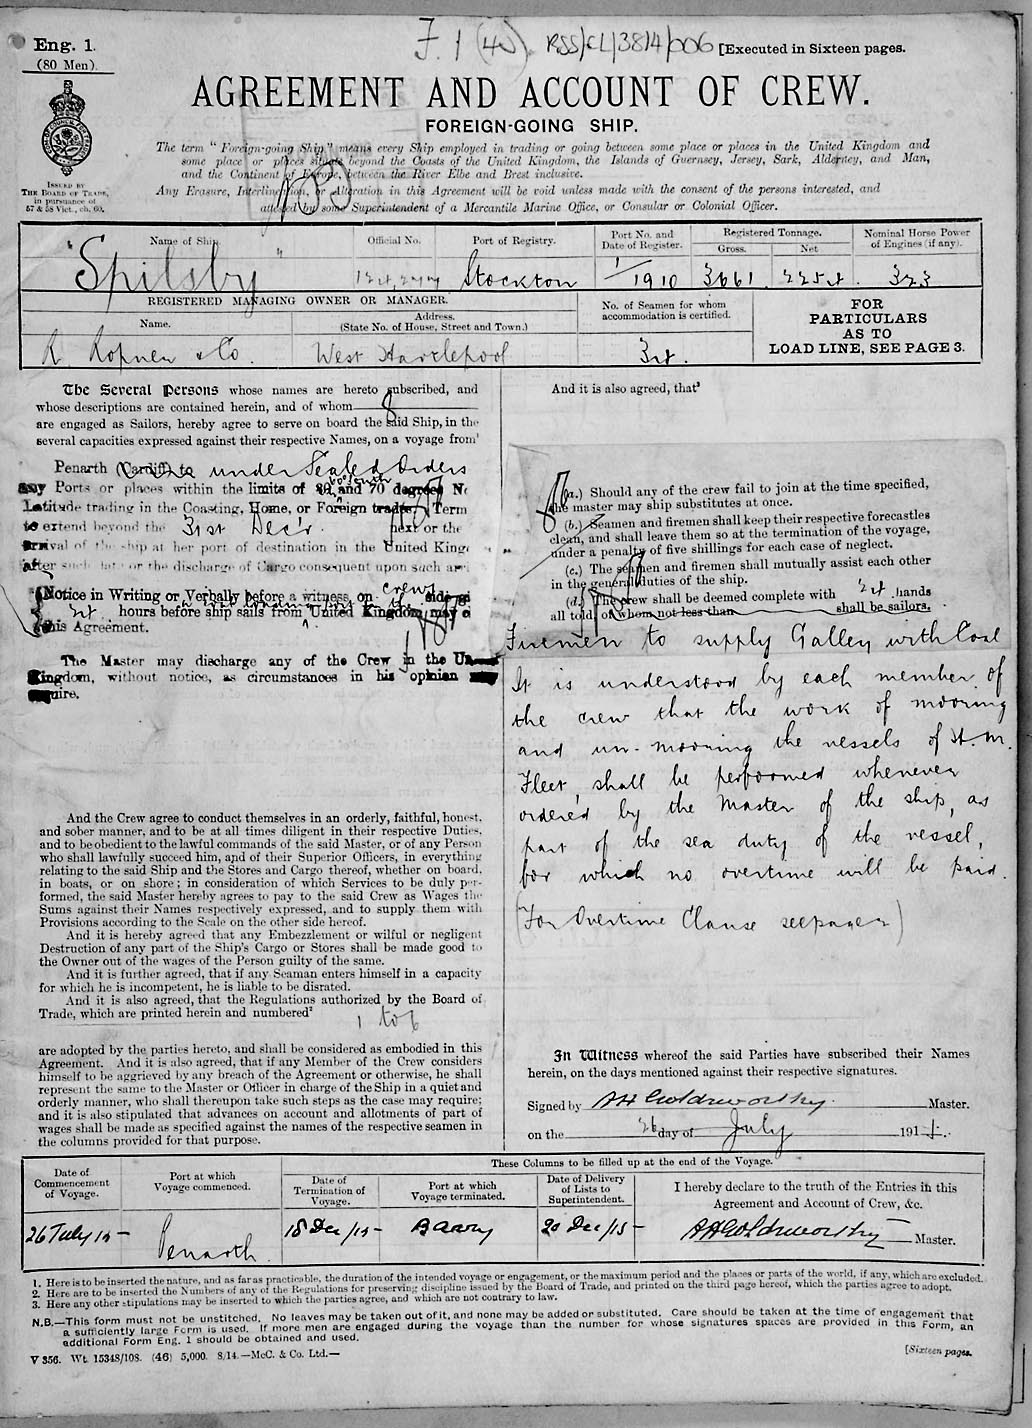 Eng. 1.
(80 Men).
F. 1 (40). RSS/CL/3814/006
[Executed in Sixteen pages.
AGREEMENT AND ACCOUNT OF CREW.
FOREIGN-GOING SHIP.
The term "Foreign-going Ship" means every Ship employed in trading or going between some place or places in the United Kingdom and
some place or places situate beyond the Coasts of the United Kingdom, the Islands of Guernsey, Jersey, Sark, Alderney, and Man,
and the Continent of Europe, between the River Elbe and Brest inclusive.
Any Erasure, Interlineation, or Alteration in this Agreement will be void unless made with the consent of the persons interested, and
attested by some Superintendent of a Mercantile Marine Office, or Consular or Colonial Officer.
ISSUED BY
THE BOARD OF TRADE,
in pursuance of
57 & 58 Vict., ch. 60.
Name of Ship.
Official No.
Port of Registry.
Port No. and
Date of Register.
Registered Tonnage.
Gross. Net
Nominal Horse Power
of Engines (if any).
"Spilsby" Stockton 1/1910 3661 323
REGISTERED MANAGING OWNER OR MANAGER.
Name.
Address.
(State No. of House, Street and Town.)
No. of Seamen for whom
accommodation is certified.
FOR
PARTICULARS
AS TO
LOAD LINE, SEE PAGE 3.
R Ropner & Co. West Hartlepool
The Several Persons whose names are hereto subscribed, and
whose descriptions are contained herein, and of whom 8
are engaged as Sailors, hereby agree to serve on board the said Ship, in the
several capacities expressed against their respective Names, on a voyage from¹
Penarth (Cardiff) to under Sealed Orders
any Ports or places within the limits of and 70 degrees
Latitude trading in the Coasting, Home, or Foreign trades. Term
to extend beyond the 31st Dec'r next or the
arrival of the ship at her port of destination in the United
after such date or the discharge of Cargo consequent upon such
(Notice in Writing or Verbally before a witness, on crews side
hours before ship sails from United Kingdom may
this Agreement.
The Master may discharge any of the Crew in the
Kingdom, without notice, as circumstances in his opinion
And the Crew agree to conduct themselves in an orderly, faithful, honest,
and sober manner, and to be at all times diligent in their respective Duties,
and to be obedient to the lawful commands of the said Master, or of any Person
who shall lawfully succeed him, and of their Superior Officers, in everything
relating to the said Ship and the Stores and Cargo thereof, whether on board,
in boats, or on shore; in consideration of which Services to be duly per-
formed, the said Master hereby agrees to pay to the said Crew as Wages the
Sums against their Names respectively expressed, and to supply them with
Provisions according to the Scale on the other side hereof.
And it is hereby agreed that any Embezzlement or wilful or negligent
Destruction of any part of the Ship's Cargo or Stores shall be made good to
the Owner out of the wages of the Person guilty of the same.
And it is further agreed, that if any Seaman enters himself in a capacity
for which he is incompetent, he is liable to be disrated.
And it is also agreed, that the Regulations authorized by the Board of
Trade, which are printed herein and numbered²
1 to 6
are adopted by the parties hereto, and shall be considered as embodied in this
Agreement. And it is also agreed, that if any Member of the Crew considers
himself to be aggrieved by any breach of the Agreement or otherwise, he shall
represent the same to the Master or Officer in charge of the Ship in a quiet and
orderly manner, who shall thereupon take such steps as the case may require;
and it is also stipulated that advances on account and allotments of part of
wages shall be made as specified against the names of the respective seamen in
the columns provided for that purpose.
And it is also agreed, that³
(a.) Should any of the crew fail to join at the time specified,
the master may ship substitutes at once.
(b.) Seamen and firemen shall keep their respective forecastles
clean, and shall leave them so at the termination of the voyage,
under a penalty of five shillings for each case of neglect.
(c.) The seamen and firemen shall mutually assist each other
in the general duties of the ship.
(d.) The crew shall be deemed complete with hands
all told, of whom not less than shall be sailors.
Firemen to supply Galley with Coal
It is understood by each member of
the crew that the work of mooring
and un-mooring the vessels of H.M.
Fleet, shall be performed whenever
ordered by the Master of the ship, as
part of the sea duty of the vessel,
for which no overtime will be paid.
(For Overtime Clause see page )
In Witness whereof the said Parties have subscribed their Names
herein, on the days mentioned against their respective signatures.
Signed by A H Goldsworthy. Master.
on the 26 day of July 191
Date of
Commencement
of Voyage.
Port at which
Voyage commenced.
These Columns to be filled up at the end of the Voyage.
Date of
Termination of
Voyage.
Port at which
Voyage terminated.
Date of Delivery
of Lists to
Superintendent.
I hereby declare to the truth of the Entries in this
Agreement and Account of Crew, &c.
26 July 15 Penarth 18 Dec/15 Barry 20 Dec/15 A H Goldsworthy Master.
1. Here is to be inserted the nature, and as far as practicable, the duration of the intended voyage or engagement, or the maximum period and the places or parts of the world, if any, which are excluded.
2. Here are to be inserted the Numbers of any of the Regulations for preserving discipline issued by the Board of Trade, and printed on the third page hereof, which the parties agree to adopt.
3. Here any other stipulations may be inserted to which the parties agree, and which are not contrary to law.
N.B.—This form must not be unstitched. No leaves may be taken out of it, and none may be added or substituted. Care should be taken at the time of engagement that
a sufficiently large Form is used. If more men are engaged during the voyage than the number for whose signatures spaces are provided in this Form, an
additional Form Eng. 1 should be obtained and used.
V 356. Wt. 15348/108. (46) 5,000. 8/14.—McC. & Co. Ltd.—
[Sixteen pages.